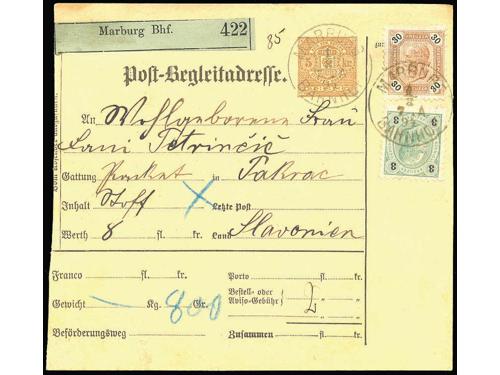 Marburg Bhf. 422
85
5 kr.
30 30
30 30
MARBURG
BAHNHOF
3 3
Post-Begleitadresse.
An Wohlgeborene Frau
Fani Petrinčić
Gattung Packet in Pakrac
Inhalt Stoff Letzte Post
Werth 8 fl. kr. Land Slavonien
Franco fl. kr. Porto fl. kr.
Gewicht Kg. 800 Gr. Bestell- oder Aviso-Gebühr 2 " "
Beförderungsweg Zusammen fl. kr.